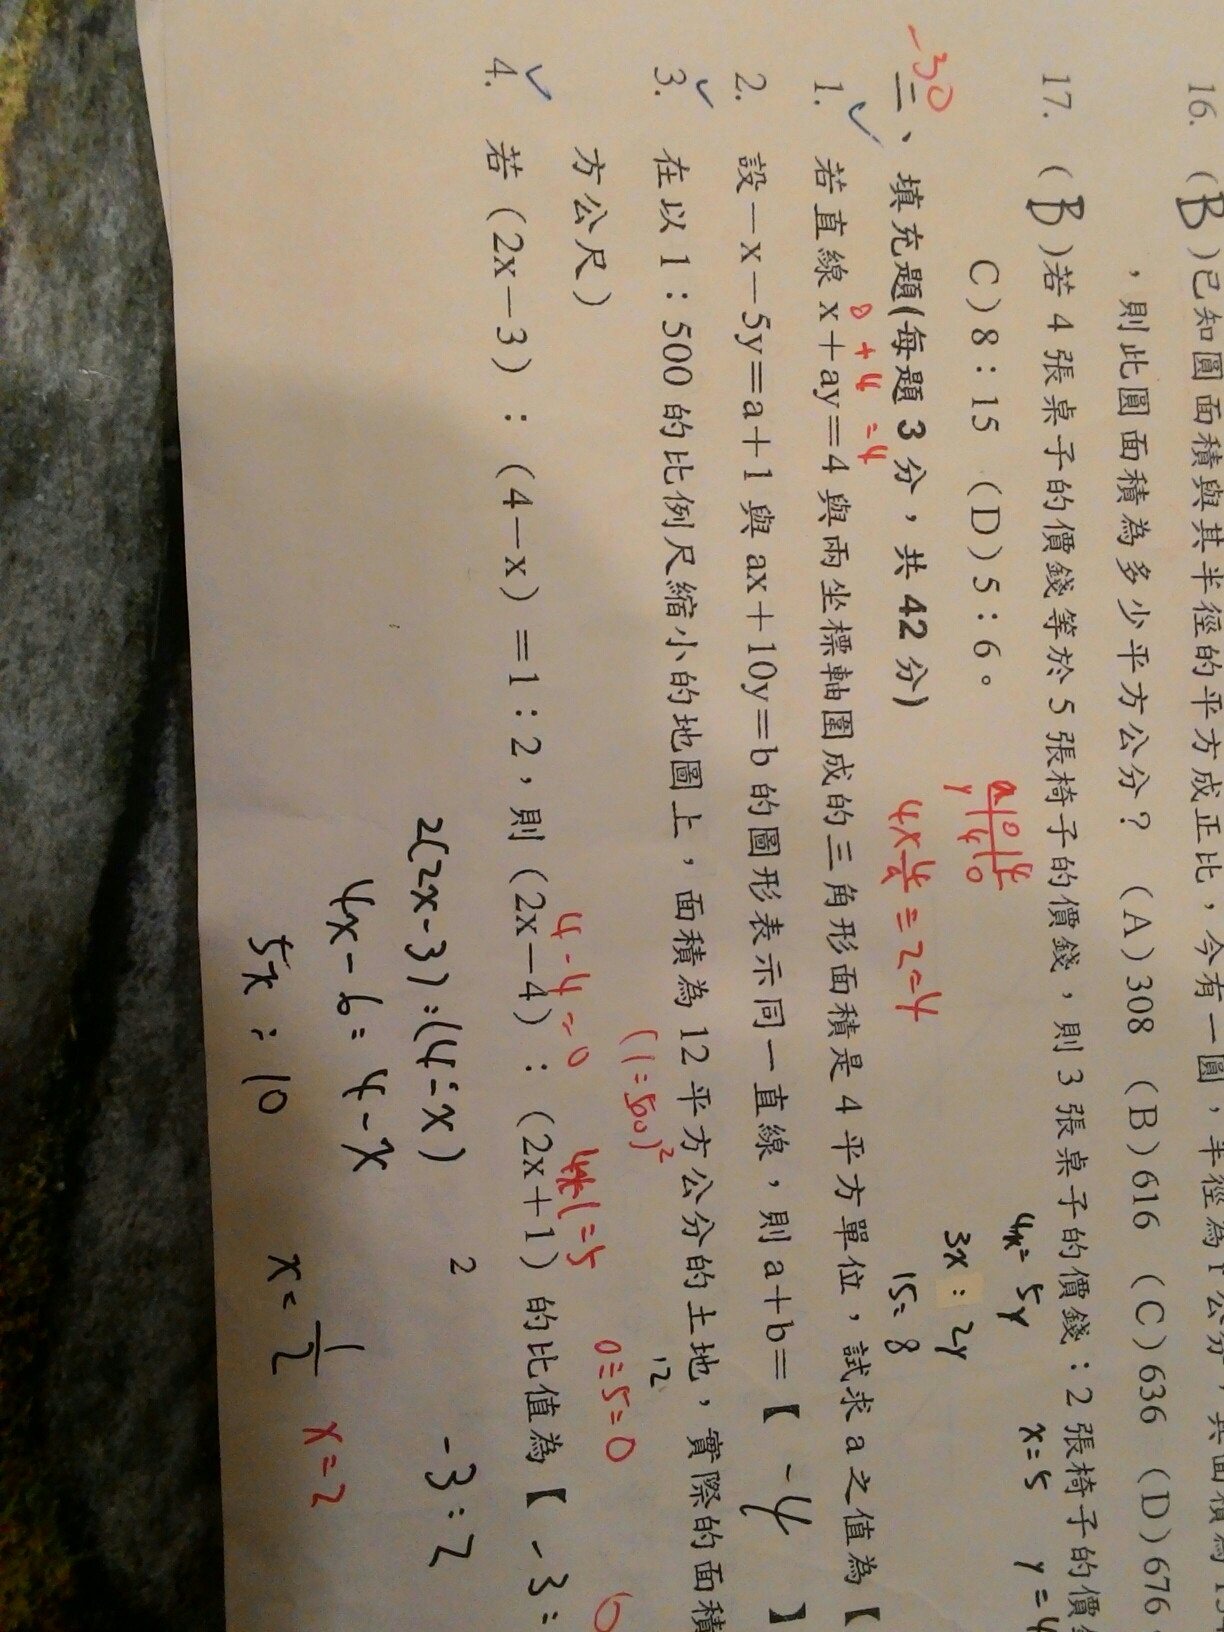 16. (B)已知圓面積與其半徑的平方成正比，今有一圓，半徑為
，則此圓面積為多少平方公分？ (A)308 (B)616 (C)636 (D)676
17. (B)若4張桌子的價錢等於5張椅子的價錢，則3張桌子的價錢：2張椅子的價
C)8：15 (D)5：6。
4x=5y x=5 y=4
3x：2y
15=8
-30
二、填充題(每題3分，共42分)
8+4=4
1. 若直線x+ay=4與兩坐標軸圍成的三角形面積是4平方單位，試求a之值為【
2. 設-x-5y=a+1與ax+10y=b的圖形表示同一直線，則a+b=【 -4 】
(1=50)²
12
3. 在以1：500的比例尺縮小的地圖上，面積為12平方公分的土地，實際的面積
方公尺)
4-4=0
0=5=0
4. 若(2x-3)：(4-x)=1：2，則(2x-4)：(2x+1)的比值為【 -3:
2(2x-3):(4-x) 2 -3:2
4x-6=4-x
5x：10 x=1/2 x=2